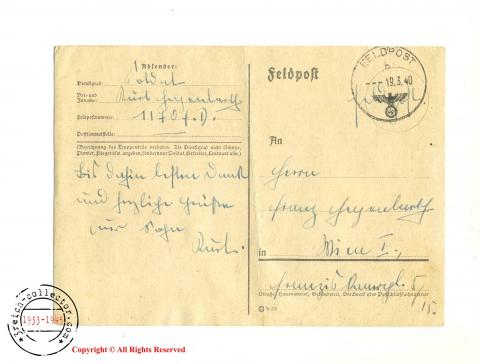 Absender:
Dienstgrad: Soldat
Vor- und
Zuname: Kurt
Feldpostnummer: 11707.D.
Postsammelstelle:
(Bezeichnung des Truppenteils verboten. Als Dienstgrad nicht Schütze,
Pionier, Flieger usw. angeben, sondern nur Soldat, Gefreiter, Leutnant usw.)
bis dahin besten Dank
und herzliche Grüße
Sohn
Kurt.
Feldpost
FELDPOST
b
19.3.40
An
Herrn
Franz
in Wien I.,
Franzis
Straße, Hausnummer, Gebäudeteil, Stockwerk oder Postschließfachnummer
3reich-collector.com
1933-1945
Copyright © All Rights Reserved